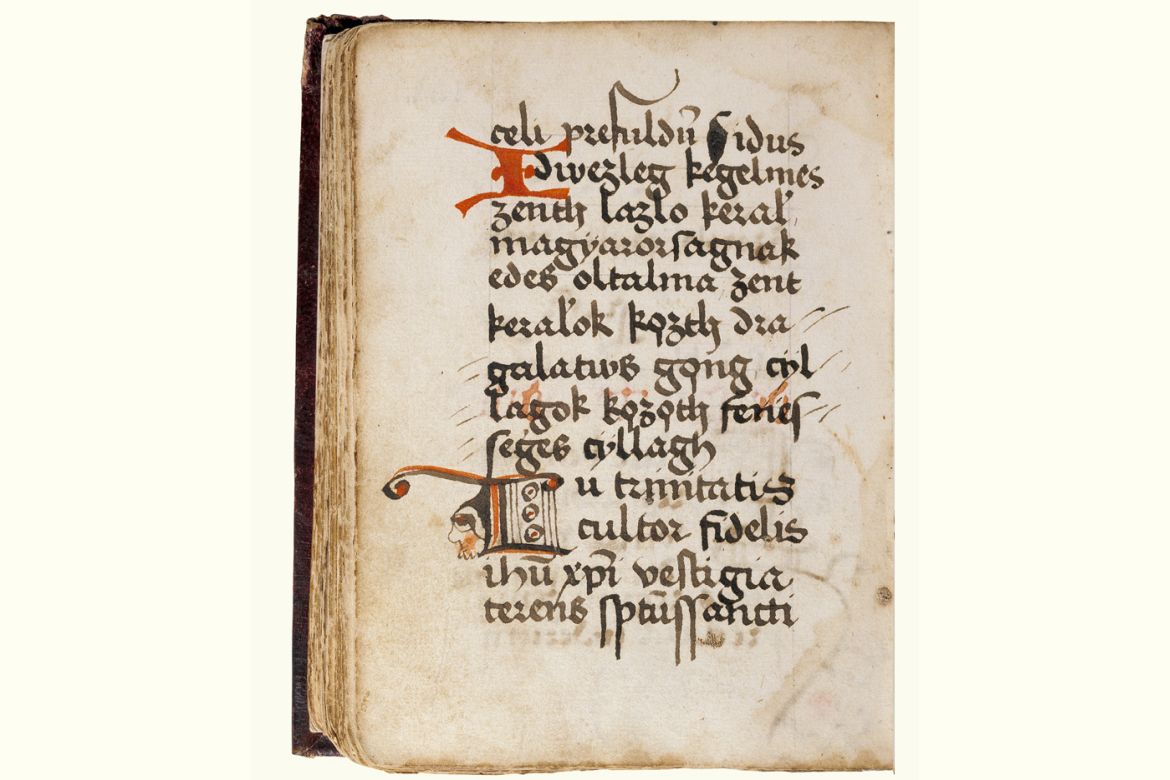 celi presuldū Sidus
Idwezleg kegelmes
zenth lazlo keral'
magyarorsagnak
edes oltalma zent
keral'ok kǫzth dra
galatws gǫng cyl
lagok kǫzǫth feńes
seges cyllagh
Tu trinitatis
cultor fidelis
ihū xp̄i vestigia
terens sptūssancti